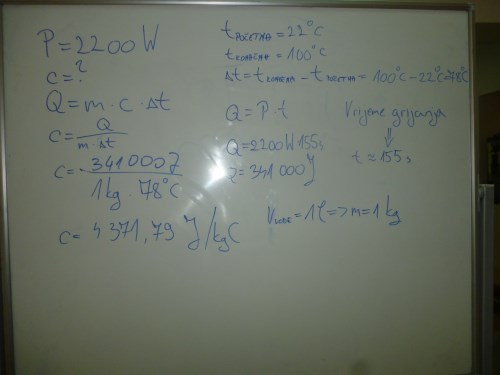 P = 2200 W
c = ?
Q = m · c · Δt
c = Q / m · Δt
c = 341000 J / 1 kg · 78°C
c = 4371,79 J/kgC
t POČETNA = 22°C
t KONAČNA = 100°C
Δt = t KONAČNA - t POČETNA = 100°C - 22°C = 78°C
Q = P · t
Q = 2200W 155s
Q = 341 000 J
Vrijeme grijanja
⇓
t ≈ 155 s
V VODE = 1 l => m = 1 kg